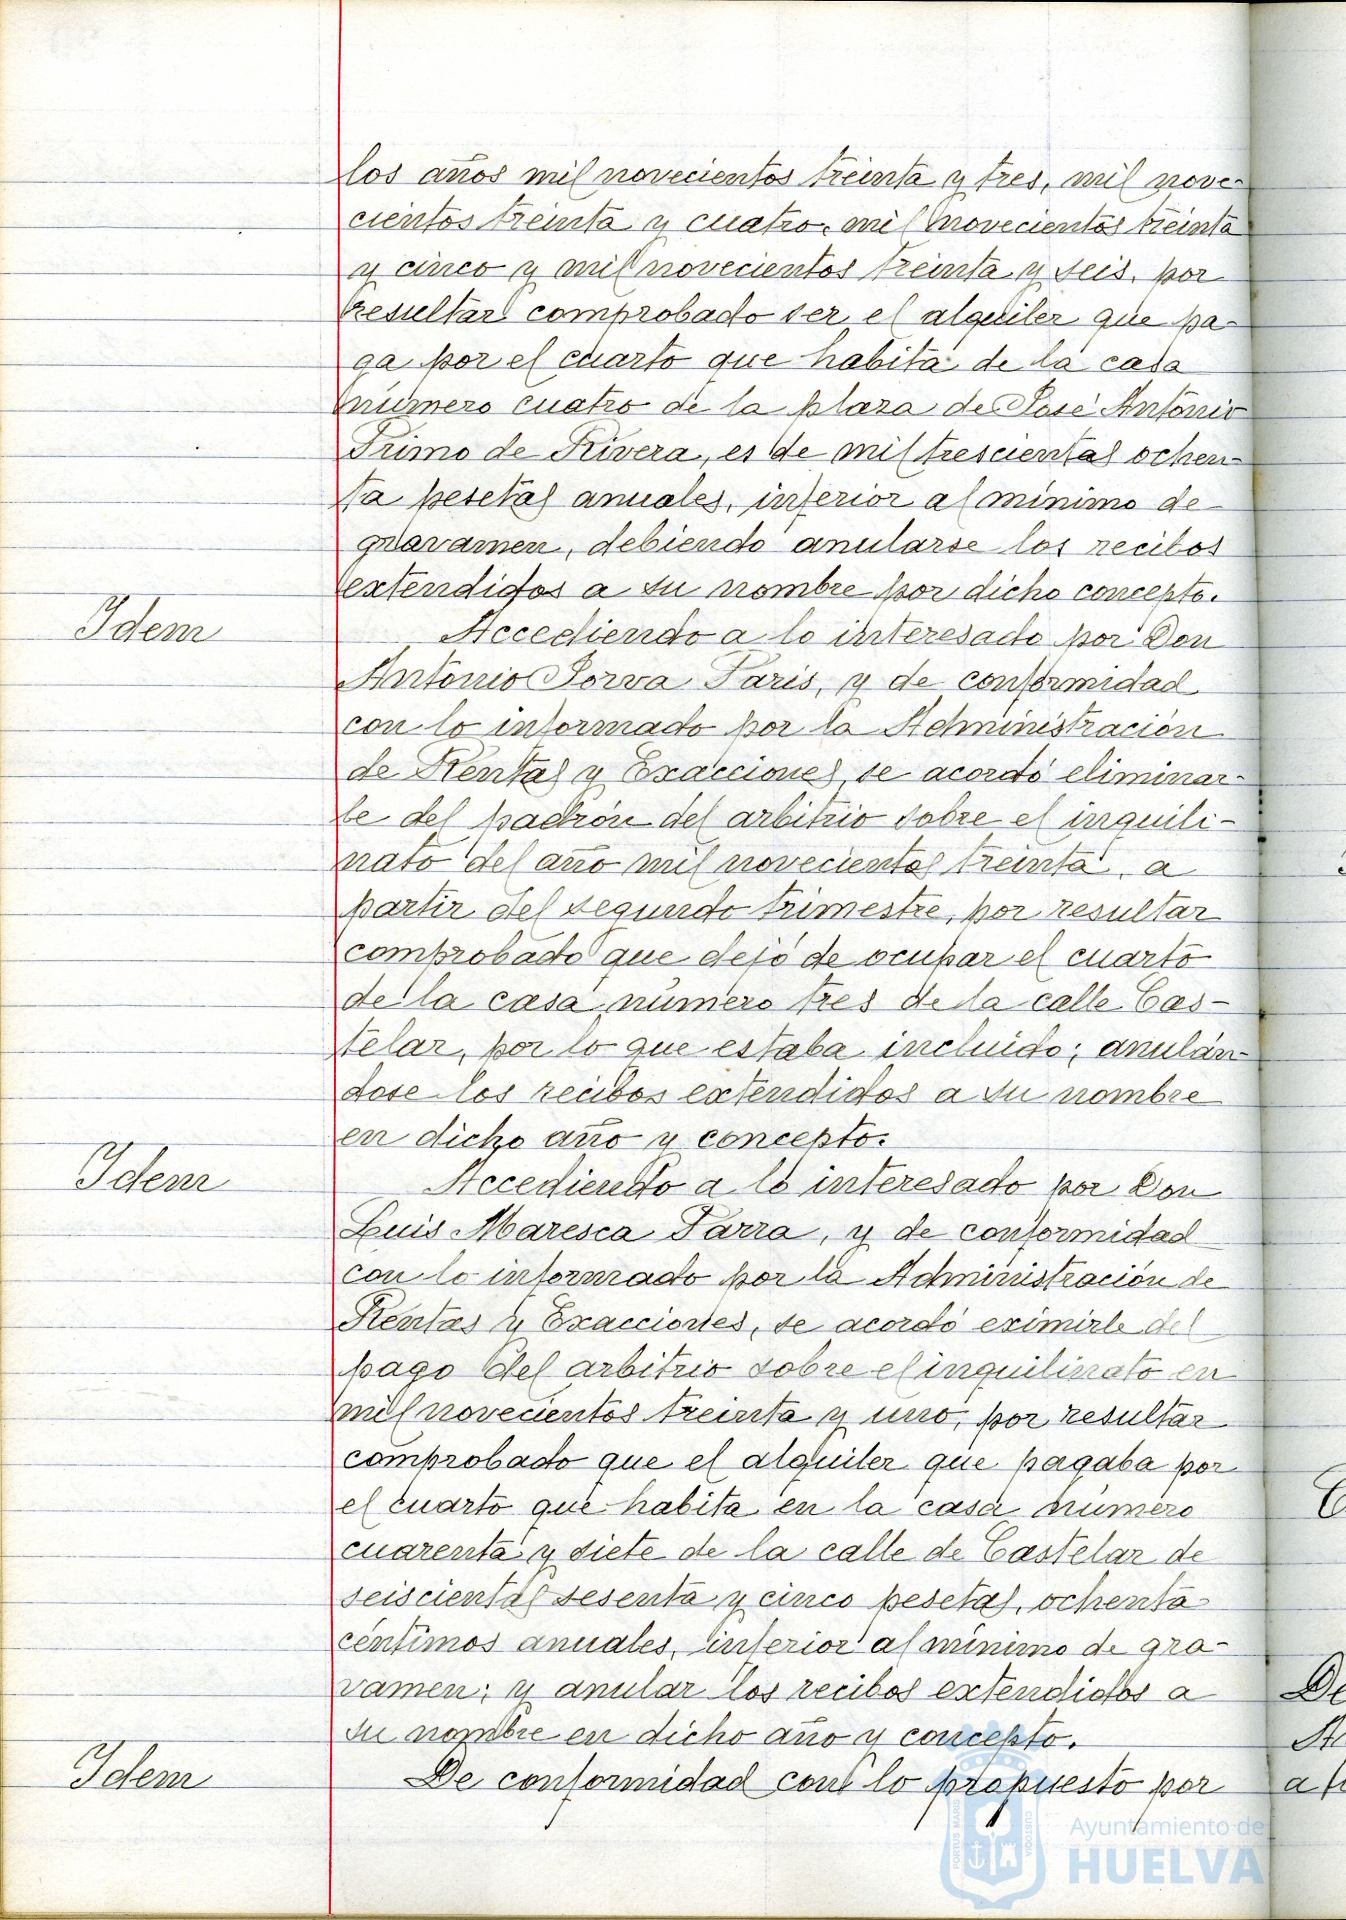 los años mil novecientos treinta y tres, mil nove-
cientos treinta y cuatro, mil novecientos treinta
y cinco y mil novecientos treinta y seis, por
resultar comprobado ser el alquiler que pa-
ga por el cuarto que habita de la casa
número cuatro de la plaza de José Antonio
Primo de Rivera, es de mil trescientas ochen-
ta pesetas anuales, inferior al mínimo de
gravamen, debiendo anularse los recibos
extendidos a su nombre por dicho concepto.
Idem
Accediendo a lo interesado por Don
Antonio Jorva Paris, y de conformidad
con lo informado por la Administración
de Rentas y Exacciones, se acordó eliminar-
le del padrón del arbitrio sobre el inquili-
nato del año mil novecientos treinta, a
partir del segundo trimestre, por resultar
comprobado que dejó de ocupar el cuarto
de la casa número tres de la calle Cas-
telar, por lo que estaba incluido; anulán-
dose los recibos extendidos a su nombre
en dicho año y concepto.
Idem
Accediendo a lo interesado por Don
Luis Maresca Parra, y de conformidad
con lo informado por la Administración de
Rentas y Exacciones, se acordó eximirle del
pago del arbitrio sobre el inquilinato en
mil novecientos treinta y uno, por resultar
comprobado que el alquiler que pagaba por
el cuarto que habita en la casa número
cuarenta y siete de la calle de Castelar de
seiscientas sesenta y cinco pesetas, ochenta
céntimos anuales, inferior al mínimo de gra-
vamen; y anular los recibos extendidos a
su nombre en dicho año y concepto.
Idem
De conformidad con lo propuesto por
De
A
a
PORTUS MARIS
CUSTODIA
Ayuntamiento de
HUELVA